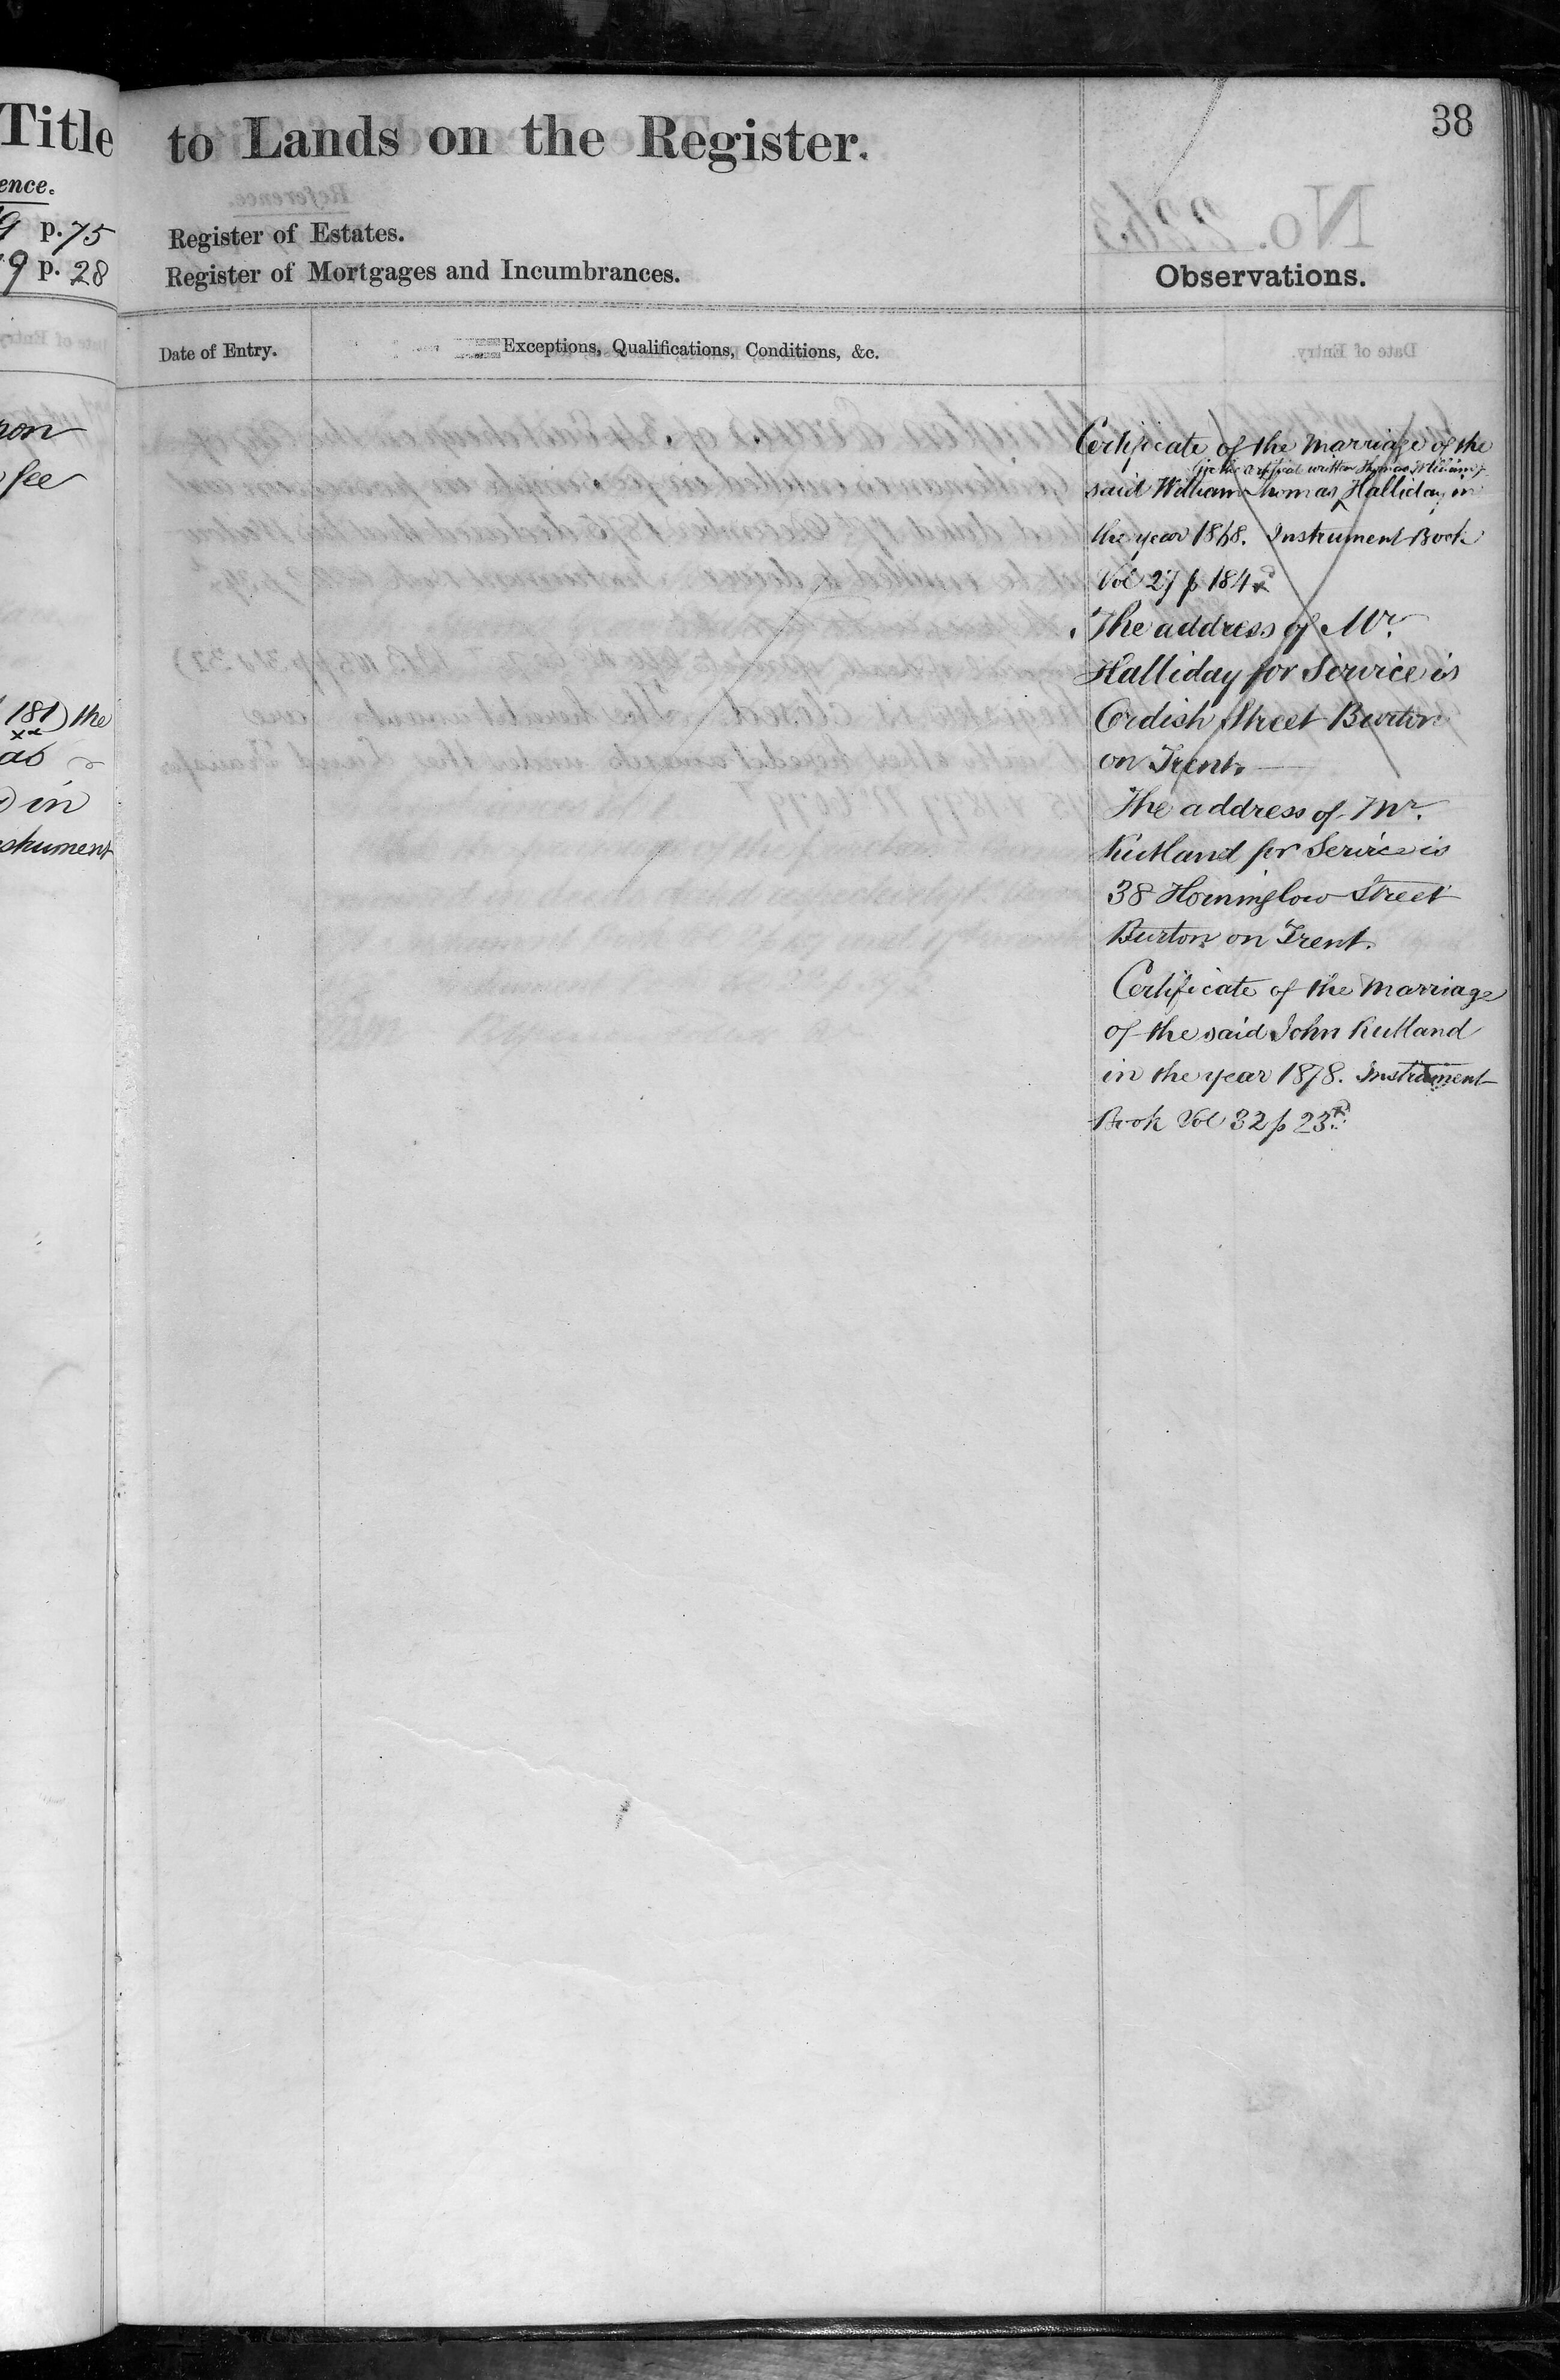 Title
ence.
9 p. 75
9 p. 28
non
fee
181) the
as
in
strument
to Lands on the Register.
38
Register of Estates.
Register of Mortgages and Incumbrances.
Observations.
Date of Entry.
Exceptions, Qualifications, Conditions, &c.
Certificate of the Marriage of the
(in the Certificate written Thomas William)
said William Thomas Halliday in
the year 1868. Instrument Book
Vol 27 p 184
The address of Mr.
Halliday for Service is
Cordish Street Burton
on Trent.
The address of Mr.
Rutland for Service is
38 Horninglow Street
Burton on Trent.
Certificate of the Marriage
of the said John Rutland
in the year 1878. Instrument
Book Vol 32 p 23